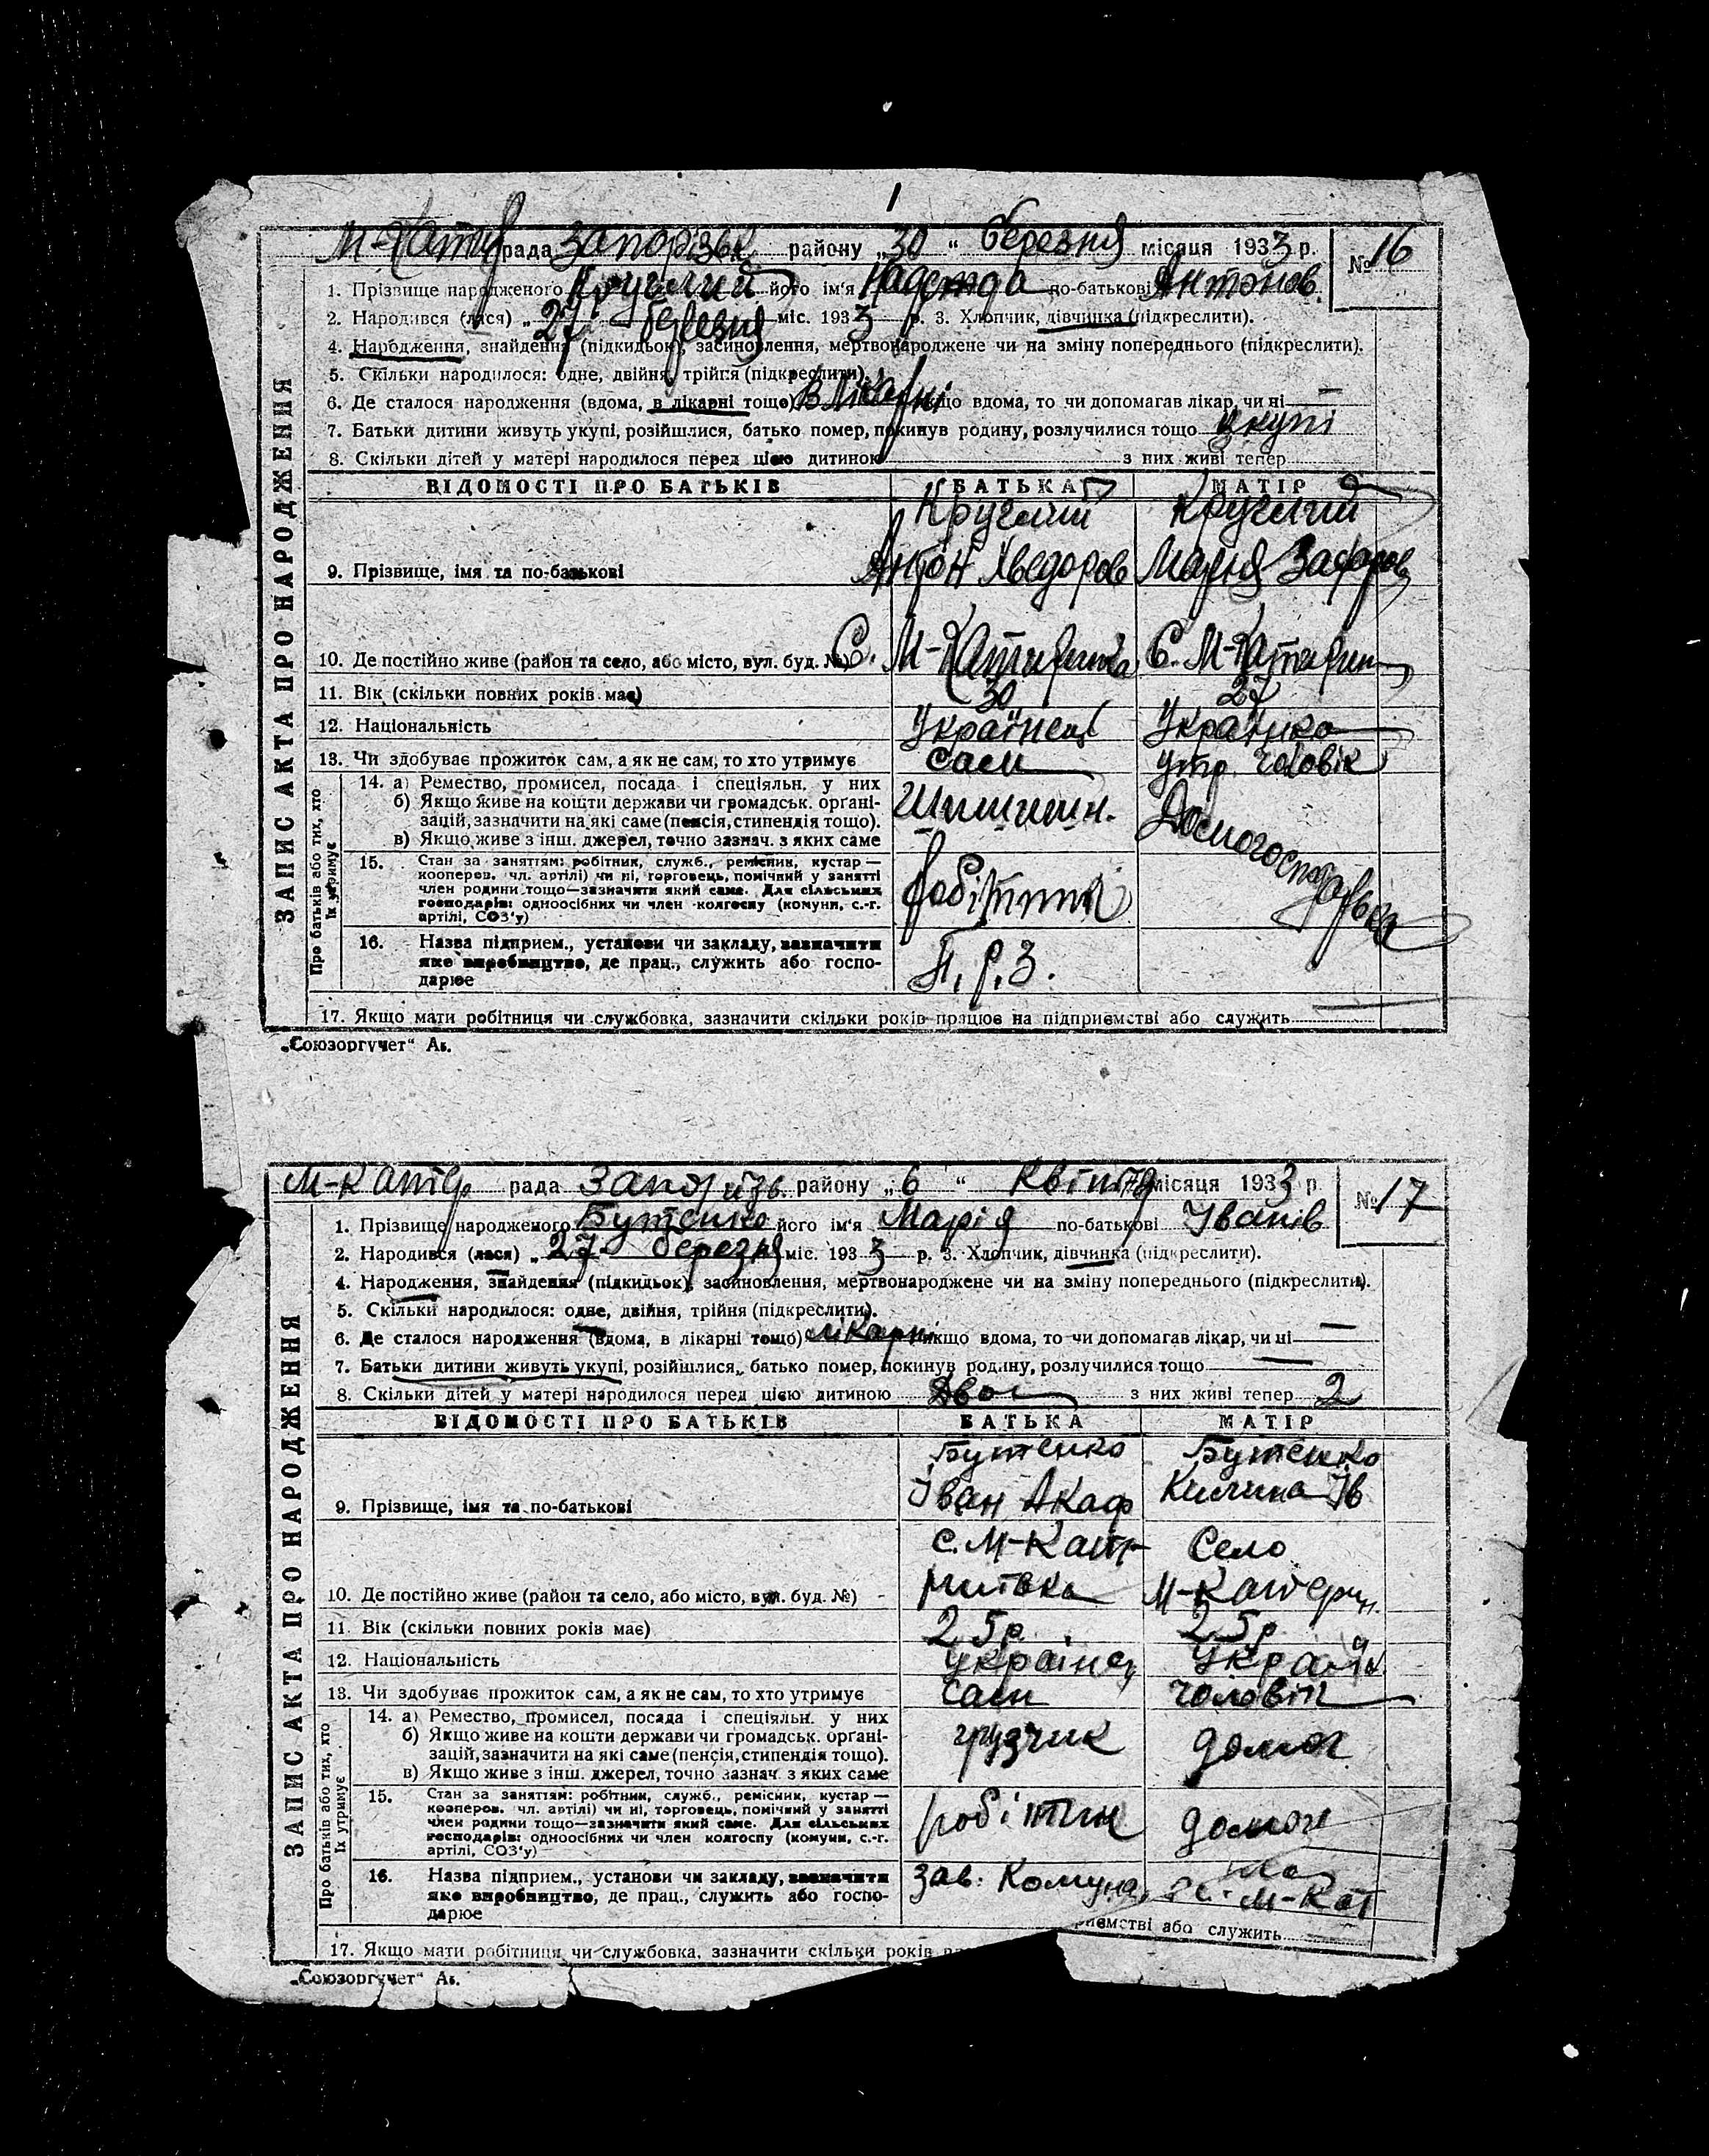 1
М-Катер рада Запорізьк району „30" березня місяця 1933 р. № 16
1. Прізвище народженого Круглий його ім'я Надежда по-батькові Антонов.
2. Народився (лася) „27 березня міс. 1933 р. 3. Хлопчик, дівчинка (підкреслити).
4. Народження, знайдення (підкидьок), засиновлення, мертвонароджене чи на зміну попереднього (підкреслити).
5. Скільки народилося: одне, двійня, трійня (підкреслити).
6. Де сталося народження (вдома, в лікарні тощо) В лікарні якщо вдома, то чи допомагав лікар, чи ні —
7. Батьки дитини живуть укупі, розійшлися, батько помер, покинув родину, розлучилися тощо укупі
8. Скільки дітей у матері народилося перед цією дитиною з них живі тепер
ЗАПИС АКТА ПРО НАРОДЖЕННЯ
ВІДОМОСТІ ПРО БАТЬКІВ БАТЬКА МАТІР
Круглий Круглий
9. Прізвище, імя та по-батькові Антон Хведоров Марія
10. Де постійно живе (район та село, або місто, вул. буд. №) С. М-Катеринка С. М-Катерин
11. Вік (скільки повних років має) 30 27
12. Національність Українець Українка
13. Чи здобуває прожиток сам, а як не сам, то хто утримує сам утр. чоловік
Про батьків або тих, хто їх утримує
14. а) Ремество, промисел, посада і спеціяльн. у них
б) Якщо живе на кошти держави чи громадськ. орґані-
зацій, зазначити на які саме (пенсія, стипендія тощо).
в) Якщо живе з інш. джерел, точно зазнач. з яких саме
Домогосподарька
15. Стан за заняттям: робітник, служб., ремісник, кустар —
кооперов. чл. артілі) чи ні, торговець, помічний у занятті
член родини тощо—зазначити який саме. Для сільських
господарів: одноосібних чи член колгоспу (комуни, с.-г.
артілі, СОЗ'у)
робітник
16. Назва підприєм., установи чи закладу, зазначити
яке виробництво, де прац., служить або госпо-
дарює
П. Р. З.
17. Якщо мати робітниця чи службовка, зазначити скільки років працює на підприємстві або служить
„Союзоргучет" Аг.
М-Катер рада Запорізь. району „6" Квітня місяця 1933 р. № 17
1. Прізвище народженого Бутенко його ім'я Марія по-батькові Іванів
2. Народився (лася) „27 березня міс. 1933 р. 3. Хлопчик, дівчинка (підкреслити).
4. Народження, знайдення (підкидьок), засиновлення, мертвонароджене чи на зміну попереднього (підкреслити).
5. Скільки народилося: одне, двійня, трійня (підкреслити).
6. Де сталося народження (вдома, в лікарні тощо) лікарні якщо вдома, то чи допомагав лікар, чи ні —
7. Батьки дитини живуть укупі, розійшлися, батько помер, покинув родину, розлучилися тощо —
8. Скільки дітей у матері народилося перед цією дитиною Двоє з них живі тепер 2
ЗАПИС АКТА ПРО НАРОДЖЕННЯ
ВІДОМОСТІ ПРО БАТЬКІВ БАТЬКА МАТІР
Бутенко Бутенко
9. Прізвище, імя та по-батькові Іван Акаф Килина Ів
с. М-Кате- Село
10. Де постійно живе (район та село, або місто, вул. буд. №) ринівка М-Катерин.
11. Вік (скільки повних років має) 25 р. 25 р
12. Національність українец україн
13. Чи здобуває прожиток сам, а як не сам, то хто утримує сам чоловік
Про батьків або тих, хто їх утримує
14. а) Ремество, промисел, посада і спеціяльн. у них
б) Якщо живе на кошти держави чи громадськ. орґані-
зацій, зазначити на які саме (пенсія, стипендія тощо).
в) Якщо живе з інш. джерел, точно зазнач. з яких саме
грузчик домог
15. Стан за заняттям: робітник, служб., ремісник, кустар —
кооперов. чл. артілі) чи ні, торговець, помічний у занятті
член родини тощо—зазначити який саме. Для сільських
господарів: одноосібних чи член колгоспу (комуни, с.-г.
артілі, СОЗ'у)
робітник домог
16. Назва підприєм., установи чи закладу, зазначити
яке виробництво, де прац., служить або госпо-
дарює
зав. Комунар М-Кат
17. Якщо мати робітниця чи службовка, зазначити скільки років приємстві або служить
„Союзоргучет" Аг.